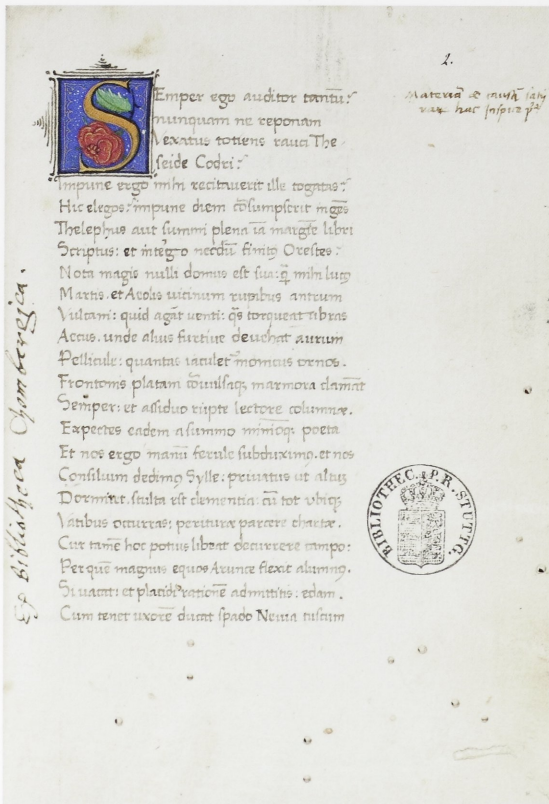 2.
Semper ego auditor tantū?
nunquam ne reponam
Vexatus totiens rauci The
seide Codri?
Impune ergo mihi recitauerit ille togatas?
Hic elegos? impune diem cōsumpserit ingēs
Thelephus aut summi plena iā margīe libri
Scriptus: et in tergo necdū finitꝰ Orestes?
Nota magis nulli domus est sua: q̄ mihi lucꝰ
Martis. et Aeolis uicinum rupibus antrum
Vulcani: quid agāt uenti: q̄s torqueat ūbras
Aecus. unde alius furtiue deuehat aurum
Pellicule: quantas iaculetʳ monicus ornos.
Frontonis platani cōuulsaqꝫ marmora clamāt
Semper: et assiduo rupte lectore columnæ.
Expectes eadem a summo minīoqꝫ poeta
Et nos ergo manū ferule subduximꝰ. et nos
Consilium dedimꝰ Sylle: priuatus ut altuꝫ
Dormiret. stulta est clementia: cū tot ubiqꝫ
Vatibus occurras: perituræ parcere chartæ.
Cur tamē hoc potius libeat decurrere campo:
Per quē magnus equos Arunce flexit alumnꝰ.
Si uacat: et placidi rationē admittitis: edam.
Cum tenet uxorē ducat spado Neuia tuscum
Materiā
Ex Bibliotheca Chombergica.
BIBLIOTHEC. P. R. STUTTG.